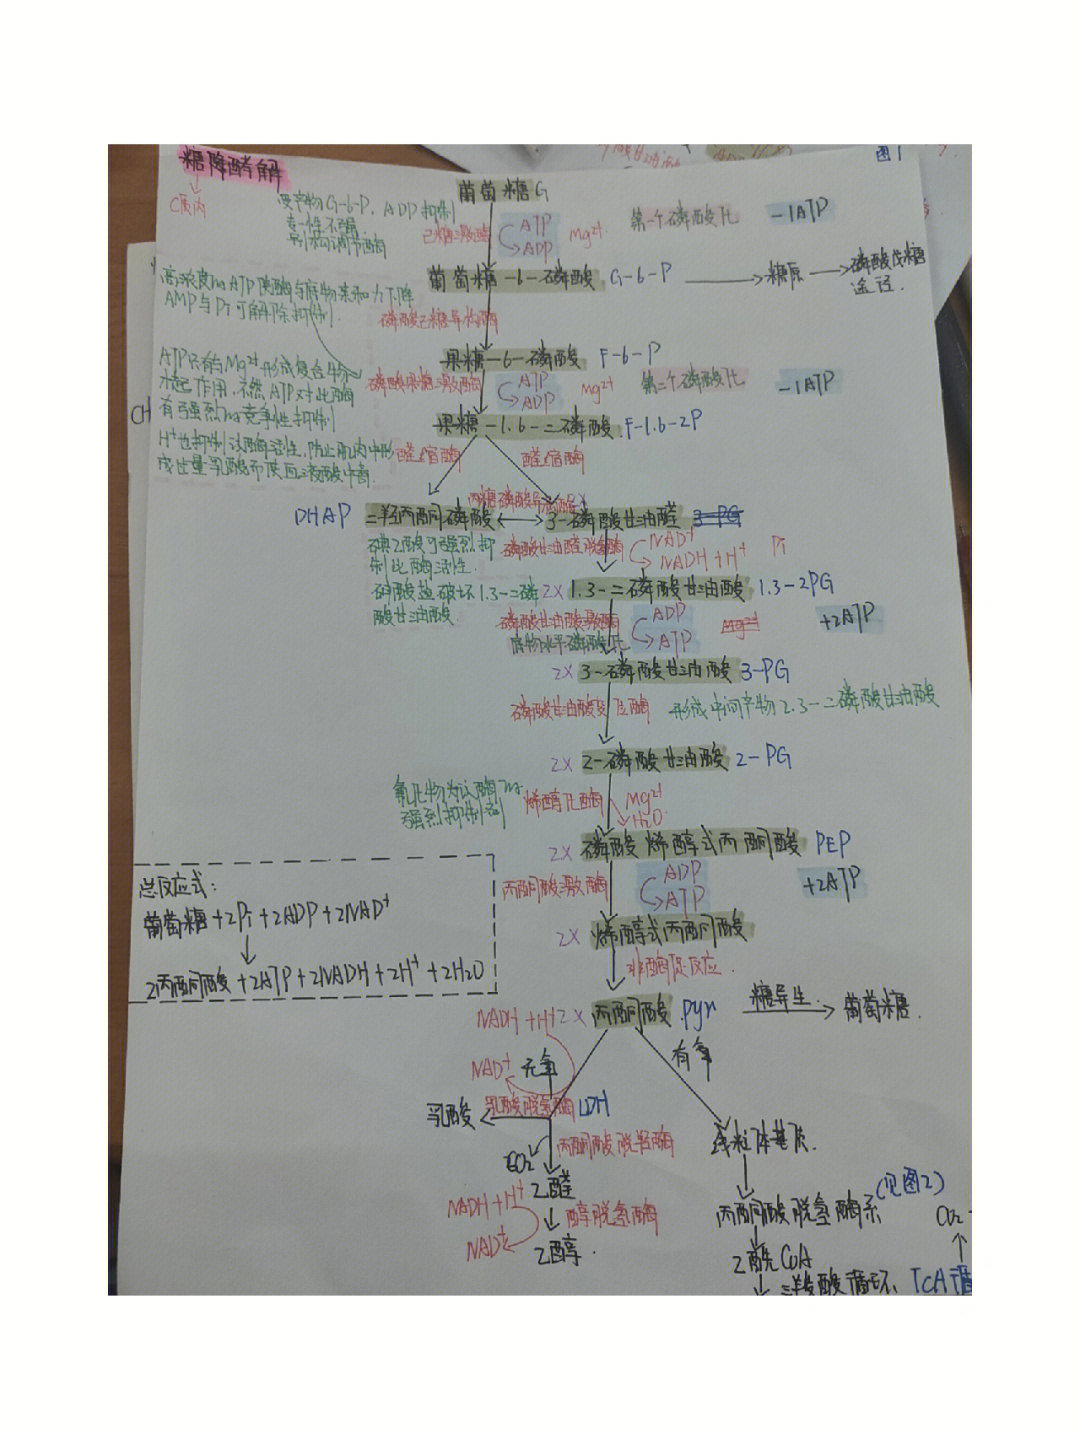 图1
糖降酵解
C质内
葡萄糖G
受产物G-6-P、ADP抑制
专一性不强
别构调节酶
己糖激酶
ATP
ADP
Mg²⁺
第一个磷酸化
-1ATP
葡萄糖-6-磷酸 G-6-P
糖原
磷酸戊糖
途径.
高浓度的ATP使酶与底物亲和力下降
AMP与Pi可解除抑制.
磷酸己糖异构酶
果糖-6-磷酸 F-6-P
ATP只有与Mg²⁺形成复合物
才起作用.不然ATP对此酶
有强烈的竞争性抑制
H⁺也抑制该酶活性,防止肌肉中形
成过量乳酸而使血液酸中毒
CH
磷酸果糖激酶
ATP
ADP
Mg²⁺
第二个磷酸化
-1ATP
果糖-1.6-二磷酸 F-1.6-2P
醛缩酶
醛缩酶
丙糖磷酸异构酶
2X
DHAP 二羟丙酮磷酸
3-磷酸甘油醛 3-PG
碘乙酸可强烈抑
制此酶活性.
砷酸盐破坏1.3-二磷
酸甘油酸.
磷酸甘油醛脱氢酶
NAD⁺
NADH+H⁺
Pi
2X 1.3-二磷酸甘油酸 1.3-2PG
磷酸甘油酸激酶
底物水平磷酸化
ADP
ATP
Mg²⁺
+2ATP
2X 3-磷酸甘油酸 3-PG
磷酸甘油酸变位酶
形成中间产物2.3-二磷酸甘油酸
2X 2-磷酸甘油酸 2-PG
氟化物为该酶的
强烈抑制剂
烯醇化酶
Mg²⁺
H₂O
2X 磷酸烯醇式丙酮酸 PEP
丙酮酸激酶
ADP
ATP
+2ATP
2X 烯醇式丙酮酸
非酶促反应.
总反应式:
葡萄糖+2Pi+2ADP+2NAD⁺
2丙酮酸+2ATP+2NADH+2H⁺+2H₂O
2X 丙酮酸 pyr
糖异生.
葡萄糖.
NADH+H⁺
NAD⁺
无氧
有氧
乳酸脱氢酶 LDH
乳酸
丙酮酸脱羧酶
CO₂
乙醛
NADH+H⁺
NAD⁺
醇脱氢酶
乙醇.
线粒体基质.
丙酮酸脱氢酶系
(见图2)
乙酰CoA
CO₂
三羧酸循环、TCA循